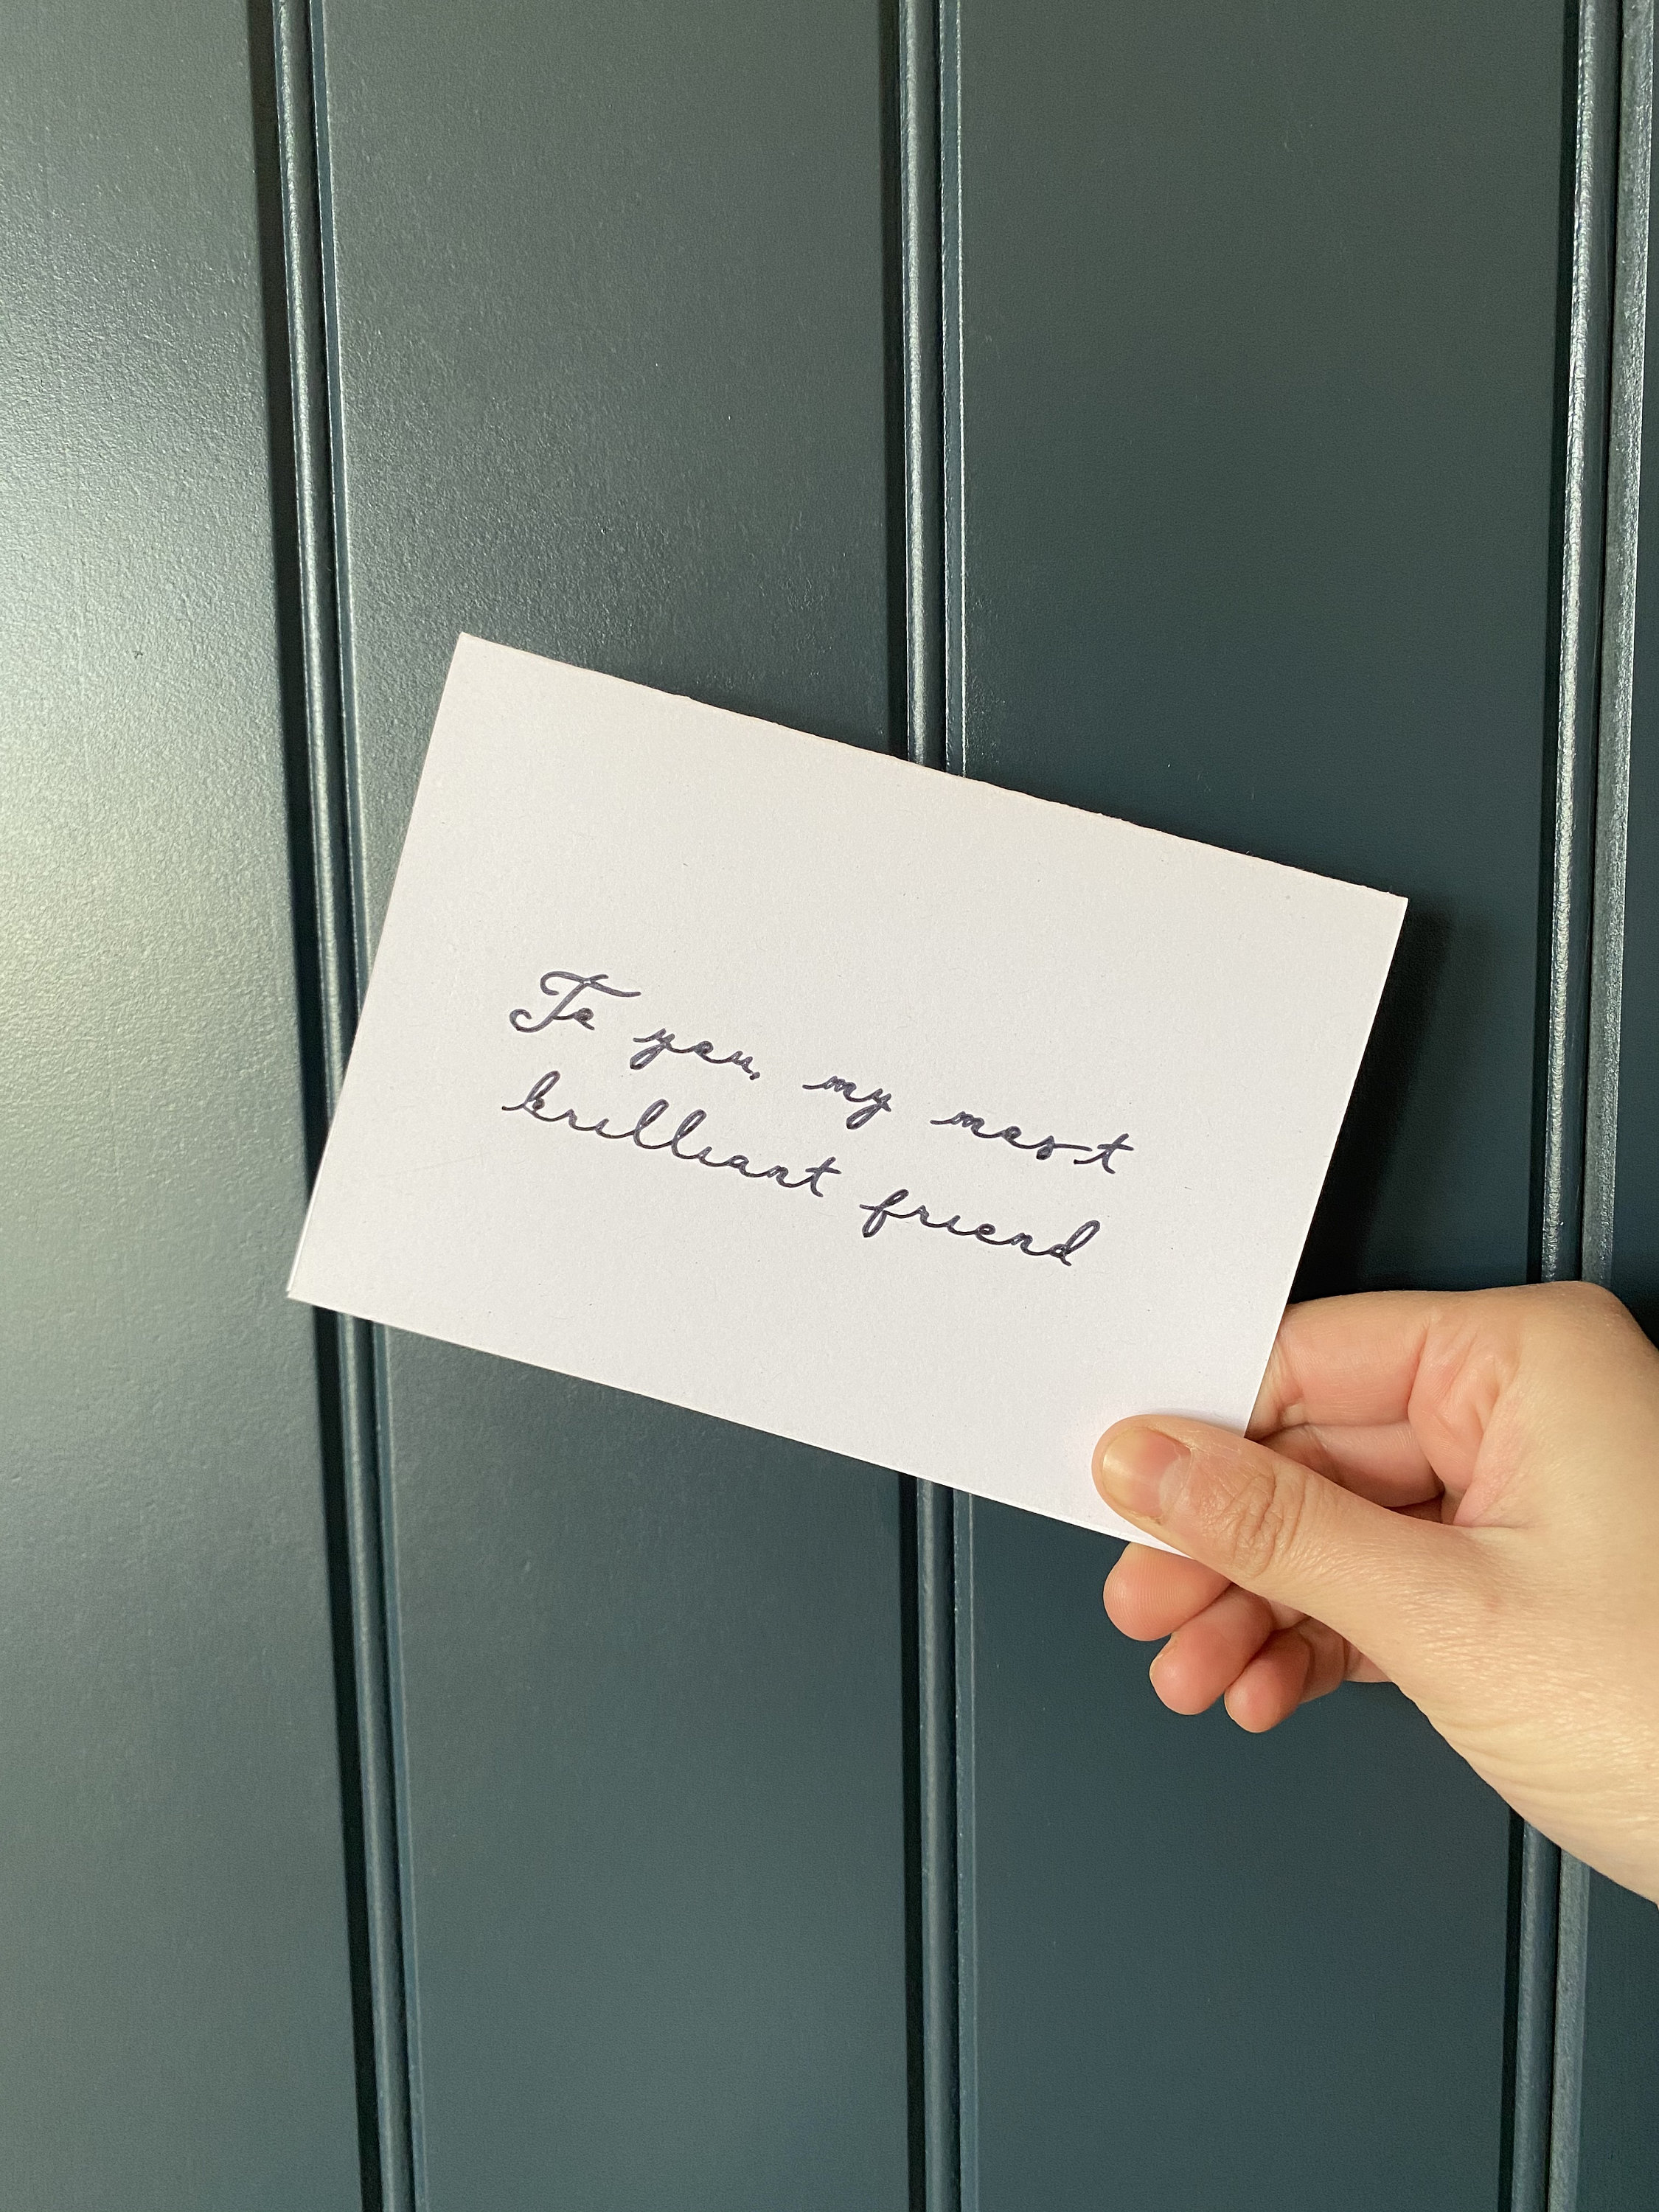 To you, my most
brilliant friend